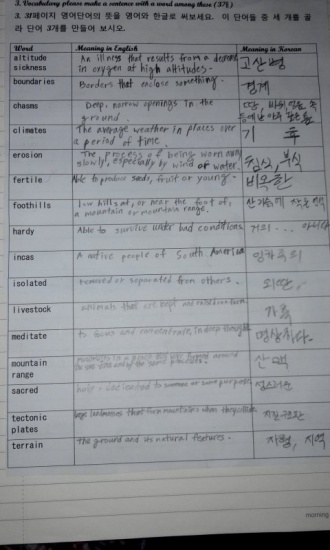 3. Vocabulary please make a sentence with a word among these (3개)
3. 3F페이지 영어단어의 뜻을 영어와 한글로 써보세요. 이 단어들 중 세 개를 골
라 단어 3개를 만들어 보시오.
Word Meaning in English Meaning in Korean
altitude sickness An illness that results from a 고산병
in oxygen at high altitudes.
boundaries Borders that enclose something. 경계
chasms Deep, narrow openings in the ground. 땅, 바위, 얼음 속
climates The average weather in places over a period of time. 기 후
erosion The process of being worn away slowly, especially by wind or water. 침식, 부식
fertile Able to produce seeds, fruit or young. 비옥한
foothills low hills at, or near the foot of, a mountain or mountain range. 산기슭에
hardy Able to survive under bad conditions. 거의... 아니다
incas A native people of South America 잉카족의
isolated removed or separated from others. 외딴,
livestock animals that are kept and raised on a farm 가축
meditate to focus and concentrate, in deep thought 명상하다.
mountain range 산맥
sacred 성스러운
tectonic plates large landmasses that form mountains when they collide.
terrain the ground and its natural features. 지형, 지역
morning